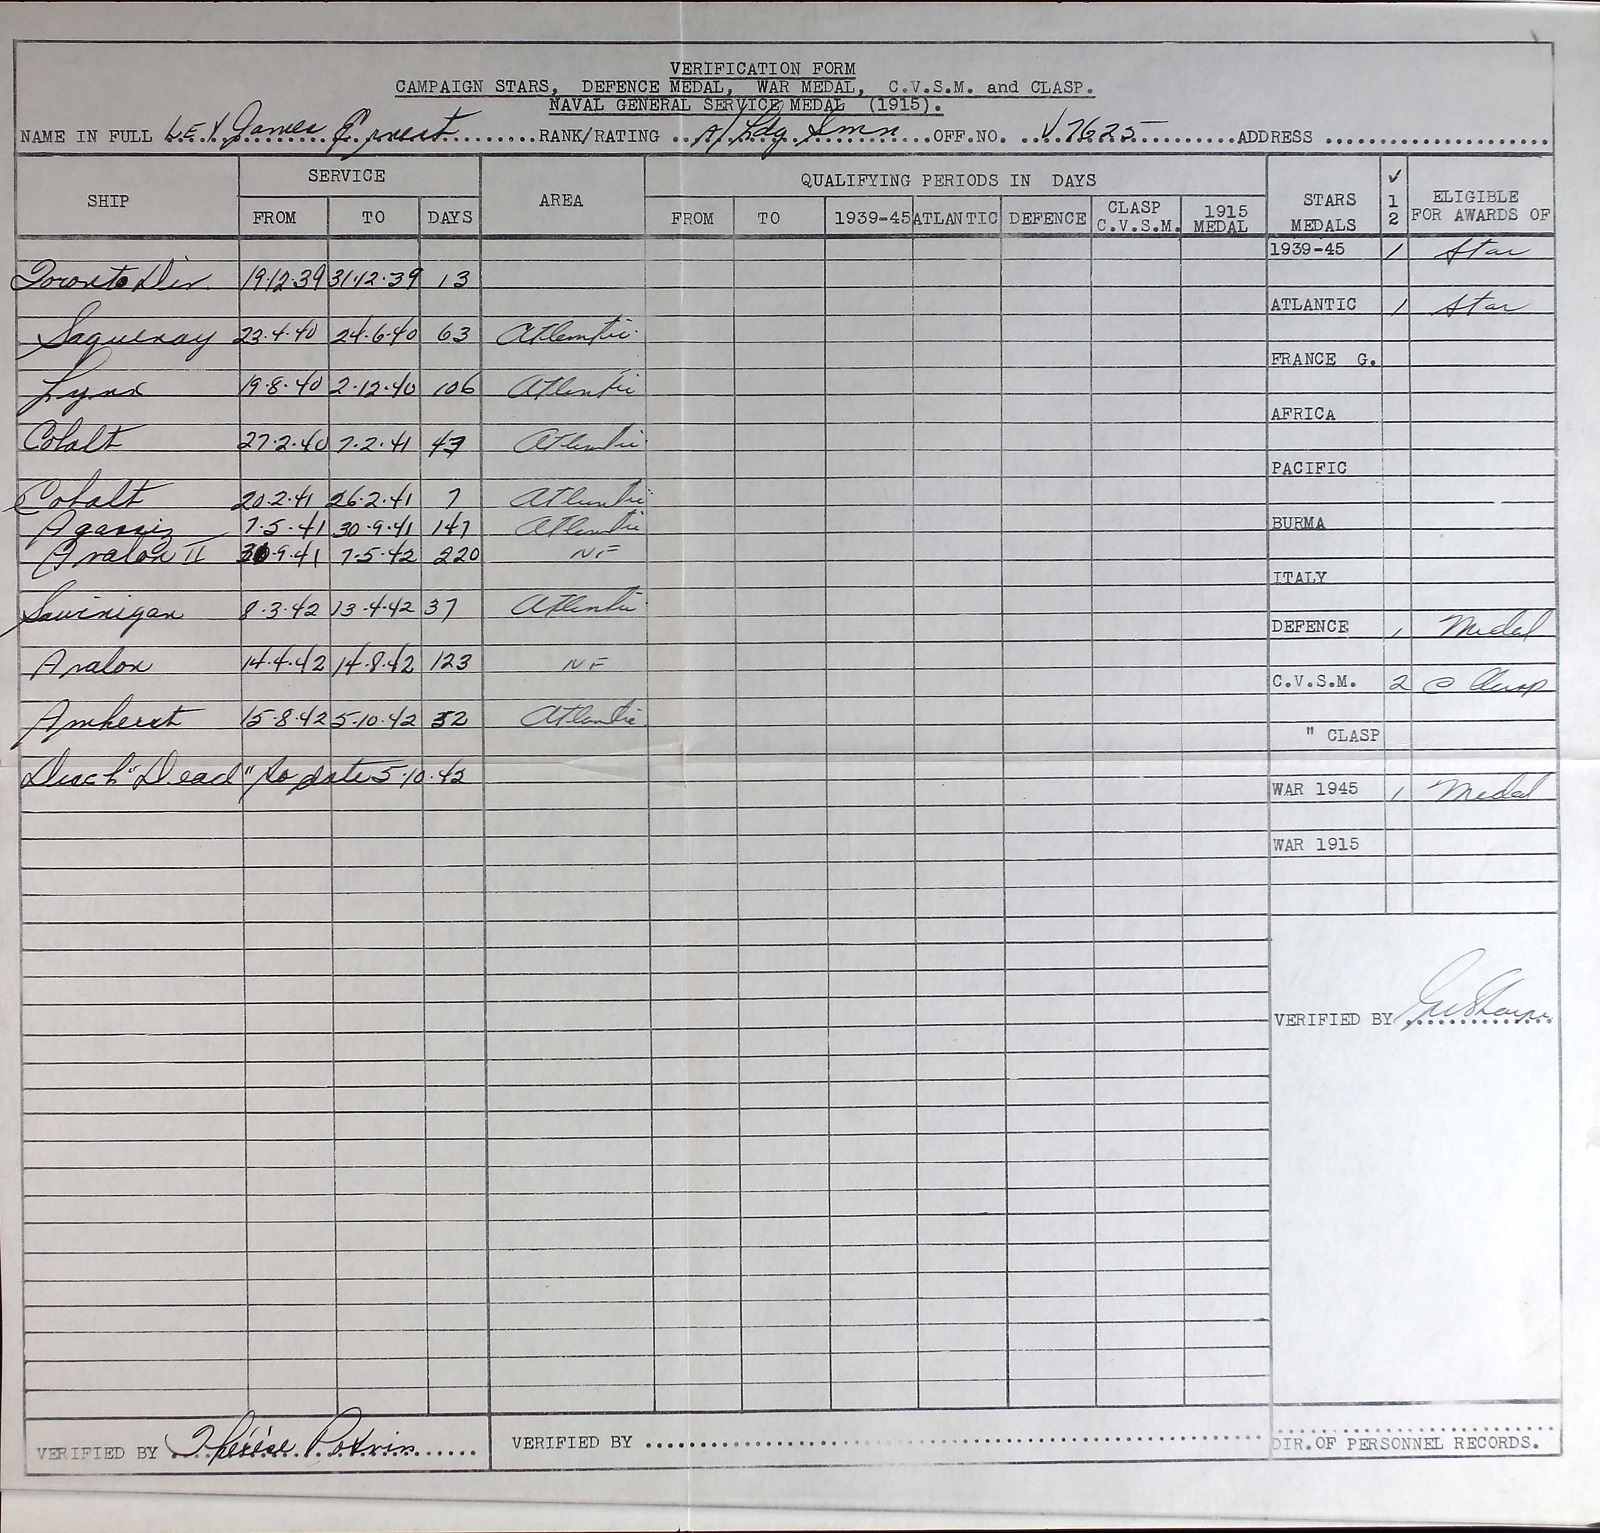 VERIFICATION FORM
CAMPAIGN STARS, DEFENCE MEDAL, WAR MEDAL, C.V.S.M. and CLASP.
NAVAL GENERAL SERVICE MEDAL (1915).
NAME IN FULL LEY James Ernest RANK/RATING A/Ldg Smn OFF.NO. V7625 ADDRESS
SHIP SERVICE AREA QUALIFYING PERIODS IN DAYS STARS MEDALS ✓ 1 2 ELIGIBLE FOR AWARDS OF
FROM TO DAYS FROM TO 1939-45 ATLANTIC DEFENCE CLASP C.V.S.M. 1915 MEDAL
1939-45 1 Star
Toronto Div. 19.12.39 31.12.39 13
ATLANTIC 1 Star
Saguenay 23.4.40 24.6.40 63 Atlantic
FRANCE G.
Lynx 19.8.40 2.12.40 106 Atlantic
AFRICA
Cobalt 27.2.40 7.2.41 43 Atlantic
PACIFIC
Cobalt 20.2.41 26.2.41 7 Atlantic
Agassiz 7.5.41 30.9.41 147 Atlantic
BURMA
Avalon II 30.9.41 7.5.42 220 NF
ITALY
Sawinigan 8.3.42 13.4.42 37 Atlantic
DEFENCE 1 Medal
Avalon 14.4.42 14.8.42 123 NF
C.V.S.M. 2 C Clasp
Amherst 15.8.42 5.10.42 52 Atlantic
" CLASP
Disch "Dead" to date 5.10.42
WAR 1945 1 Medal
WAR 1915
VERIFIED BY
VERIFIED BY Thérèse Potvin VERIFIED BY DIR.OF PERSONNEL RECORDS.